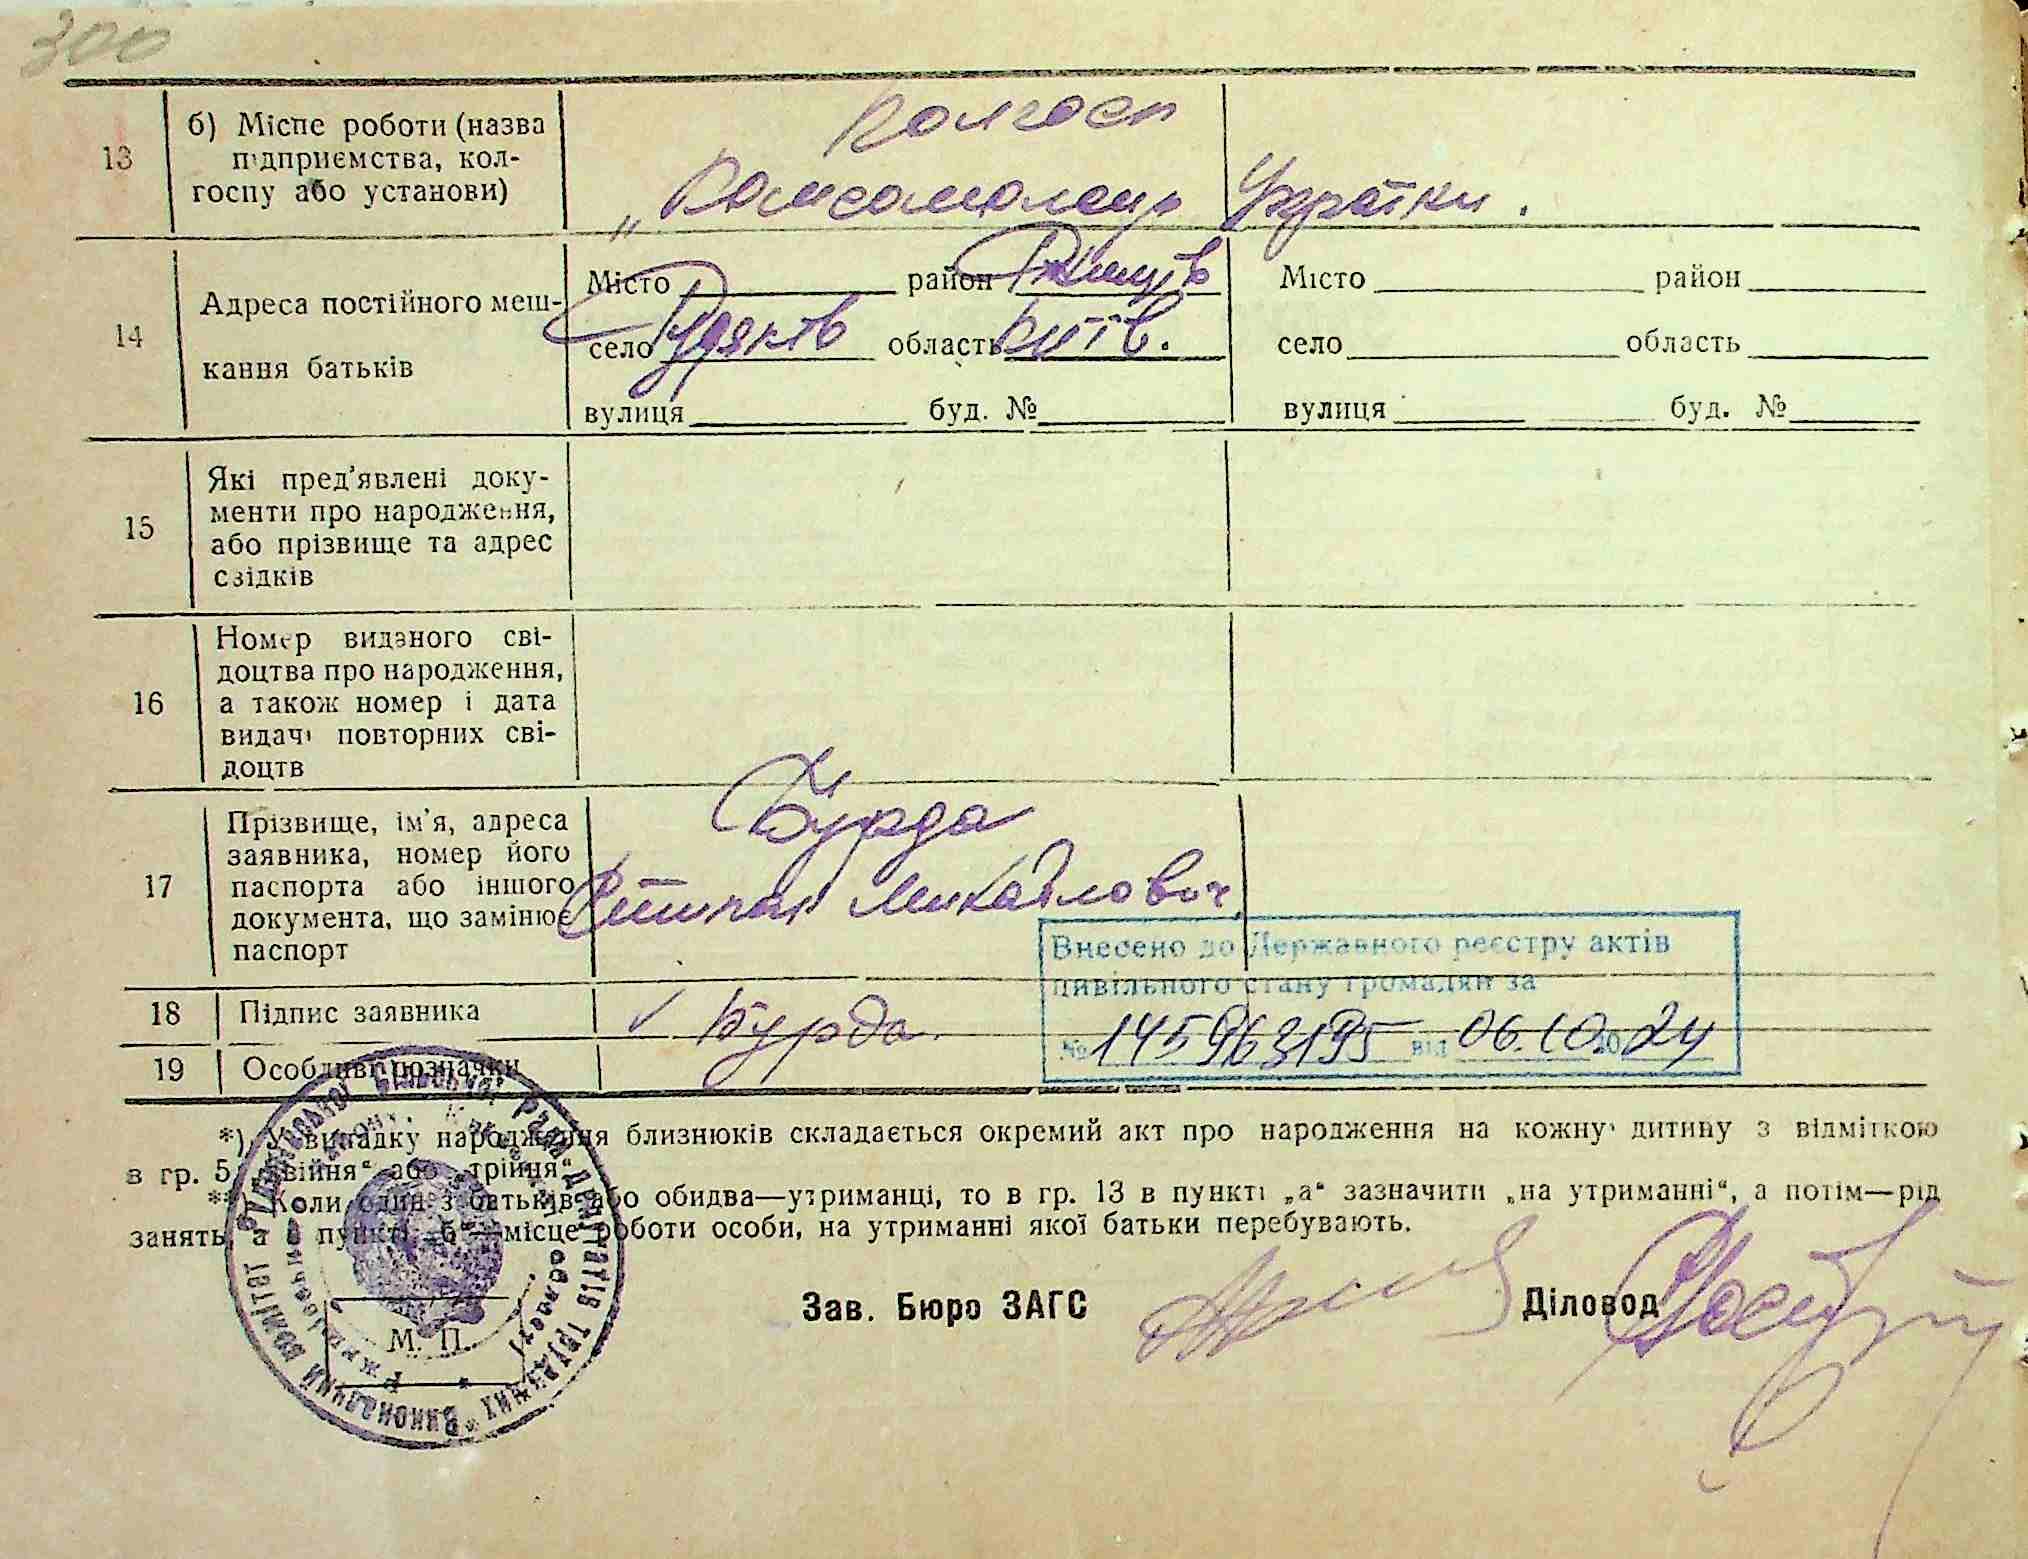 300
13 б) Місце роботи (назва підприємства, кол-
госпу або установи)
Колгосп
„Комсомолець України.
14 Адреса постійного меш-
кання батьків
Місто район Ржищів Місто район
село Гудяків область Київ. село область
вулиця буд. № вулиця буд. №
15 Які пред'явлені доку-
менти про народження,
або прізвище та адрес
свідків
16 Номер виданого сві-
доцтва про народження,
а також номер і дата
видачі повторних сві-
доцтв
17 Прізвище, ім'я, адреса
заявника, номер його
паспорта або іншого
документа, що замінює
паспорт
Бурда
Степан Михайлович
Внесено до Державного реєстру актів
цивільного стану громадян за
№ 145963195 від 06.10.2024
18 Підпис заявника Бурда
19 Особливі позначки
*) У випадку народження близнюків складається окремий акт про народження на кожну дитину з відміткою
в гр. 5 „двійня“ або „трійня“.
**) Коли один з батьків або обидва—утриманці, то в гр. 13 в пункті „а“ зазначити „на утриманні“, а потім—рід
занять, а в пункті „б“—місце роботи особи, на утриманні якої батьки перебувають.
Зав. Бюро ЗАГС Діловод
М. П.
Виконавчий комітет сільської Ради депутатів трудящих